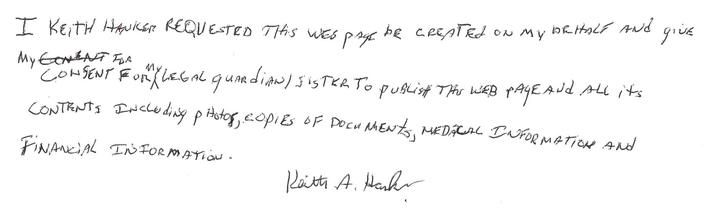 I KEITH HANKER REQUESTED THIS WEB PAGE BE CREATED ON MY BEHALF AND GIVE
MY CONSENT FOR
CONSENT FOR MY (LEGAL GUARDIAN) SISTER TO PUBLISH THIS WEB PAGE AND ALL ITS
CONTENTS INCLUDING PHOTOS, COPIES OF DOCUMENTS, MEDICAL INFORMATION AND
FINANCIAL INFORMATION.
Keith A. Hanker